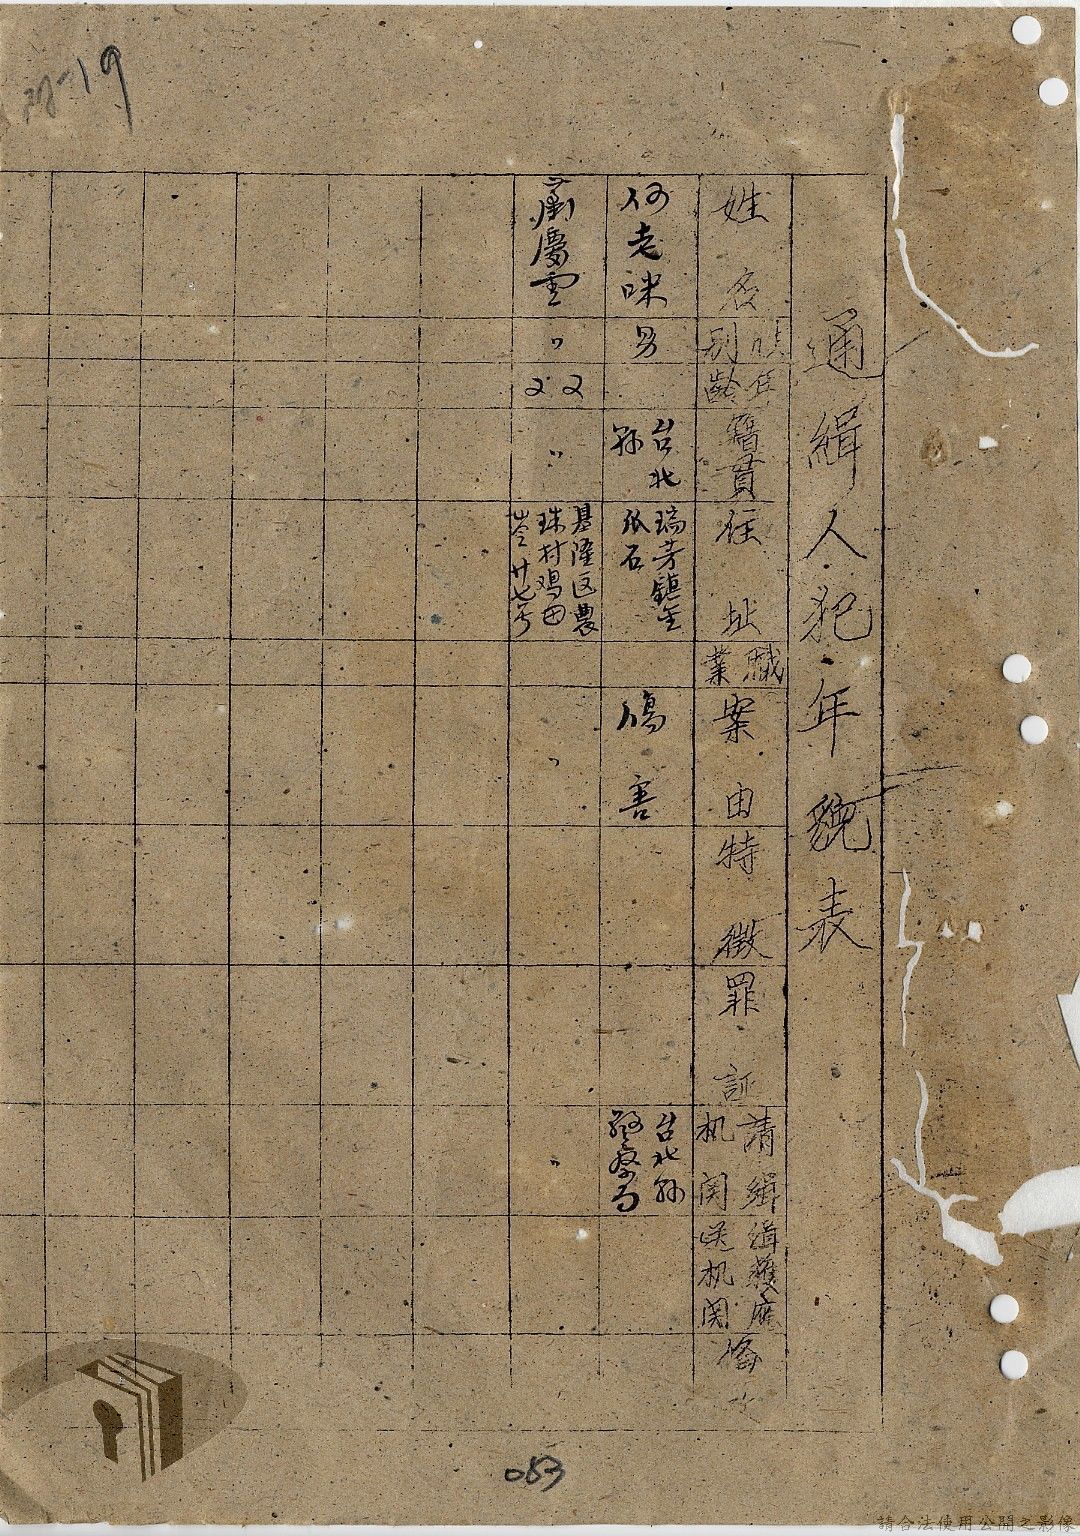 19
通緝人犯年貌表
姓名
性別
年齡
籍貫
住址
職業
案由
特徵
罪証
請緝机関
緝獲應送机関
備
何老咪
男
台北
縣
瑞芳鎮金
瓜石
傷害
台北縣
警察局
蕭慶雲
〃
22
〃
基隆区農
珠村鳮田
嶺廿七号
〃
〃
083
請合法使用公開之影像